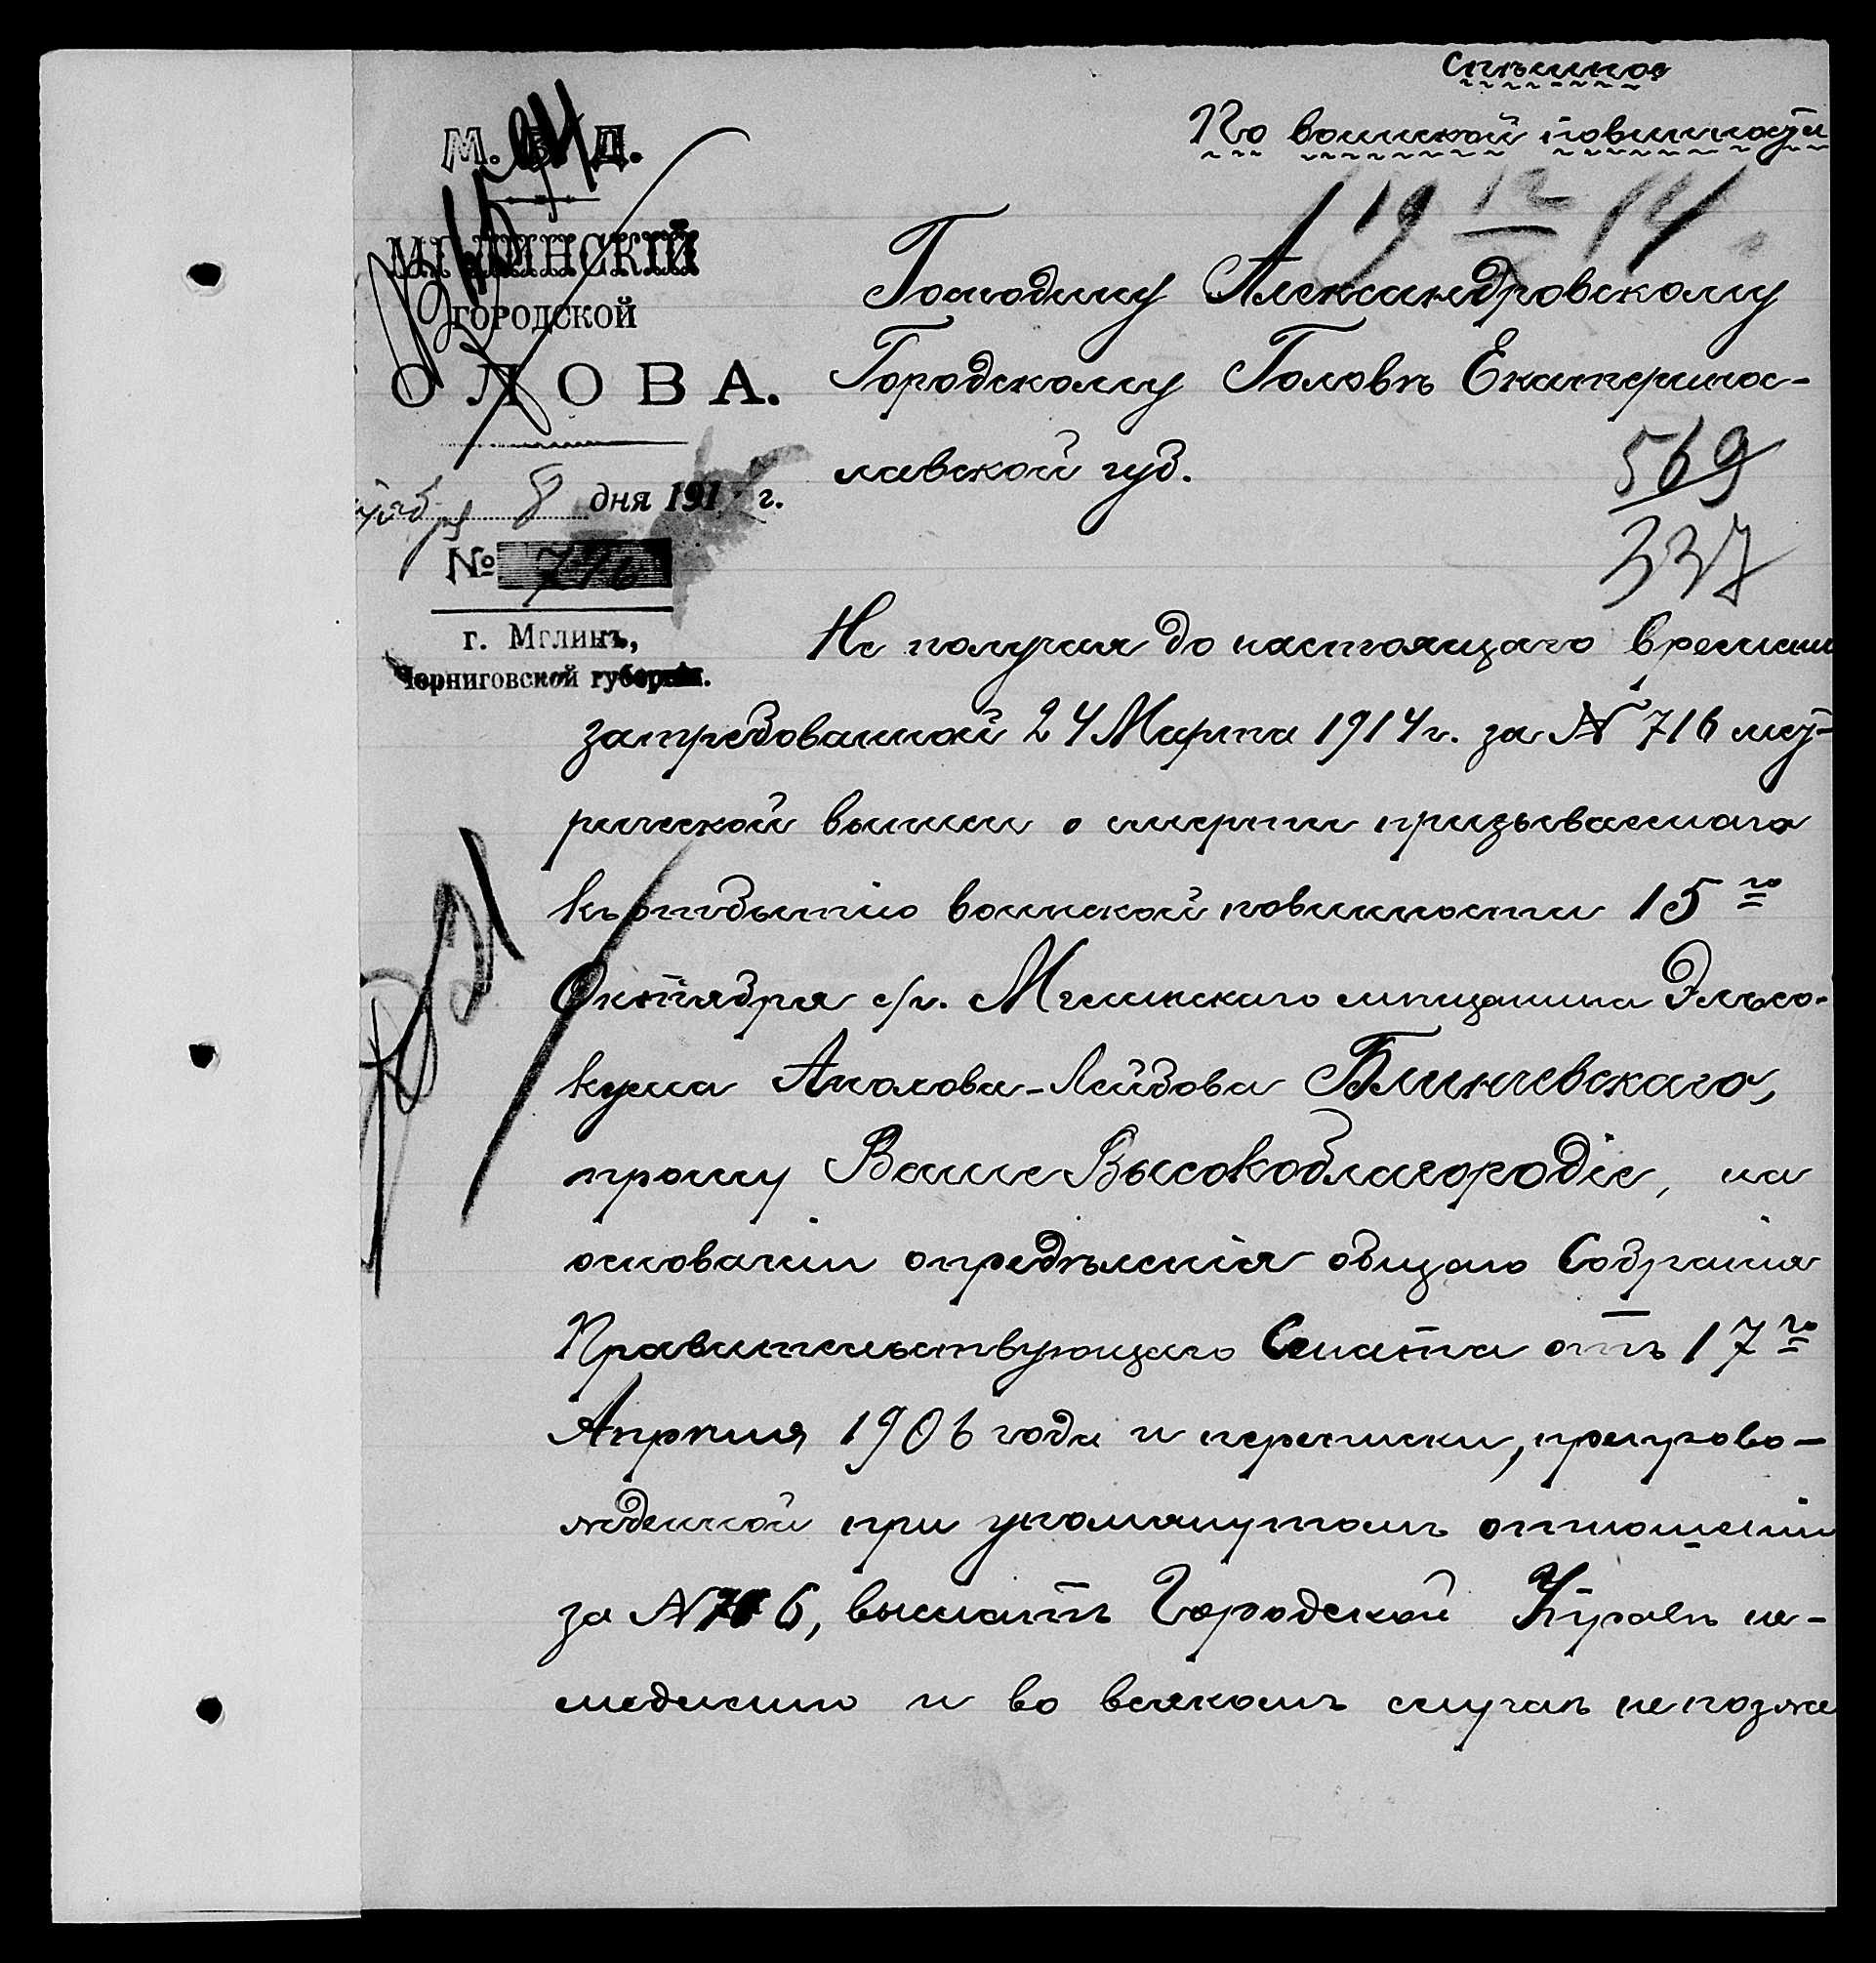 Спѣшное
По воинской повинности
М. В. Д.
19 12 14
МГЛИНСКІЙ
ГОРОДСКОЙ
ОЛОВА.
8 дня 191 г.
№ 796
г. Мглинъ,
Черниговской губерніи.
Господину Александровскому
Городскому Головѣ Екатеринос-
лавской губ.
569
337
Не получая до настоящаго времени
затребованной 24 Марта 1914 г. за № 716 мет-
рической выписи о смерти призываемаго
къ отбытію воинской повинности 15го
Октября с/г. Мглинскаго мѣщанина Элько-
куна Лейбова Блинчевскаго,
прошу Ваше Высокоблагородіе, на
основаніи опредѣленія общаго Собранія
Правительствующаго Сената отъ 17го
Апрѣля 1906 года и переписки, препрово-
жденной при упомянутомъ отношеніи
за № 716, выслать Городской Управѣ не-
медленно и во всякомъ случаѣ не позже